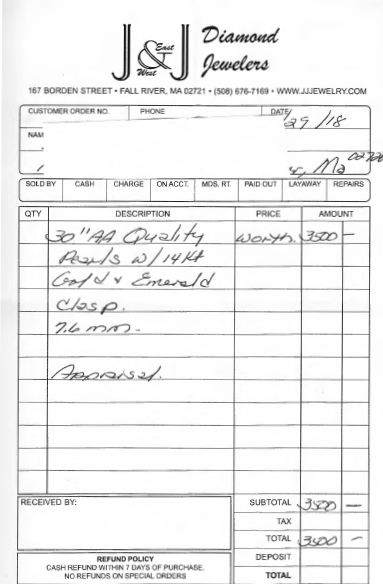 J & J Diamond
East West Jewelers
167 BORDEN STREET • FALL RIVER, MA 02721 • (508) 676-7169 • WWW.JJJEWELRY.COM
CUSTOMER ORDER NO. PHONE DATE
/29/18
NAM
Ma 02720
SOLD BY CASH CHARGE ON ACCT. MDS. RT. PAID OUT LAYAWAY REPAIRS
QTY DESCRIPTION PRICE AMOUNT
30" AA Quality worth 3500 —
Pearls w/14Kt
Gold & Emerald
Clasp.
7.6 mm.
Appraisal.
RECEIVED BY:
SUBTOTAL 3500 —
TAX
TOTAL 3500 —
DEPOSIT
TOTAL
REFUND POLICY
CASH REFUND WITHIN 7 DAYS OF PURCHASE.
NO REFUNDS ON SPECIAL ORDERS